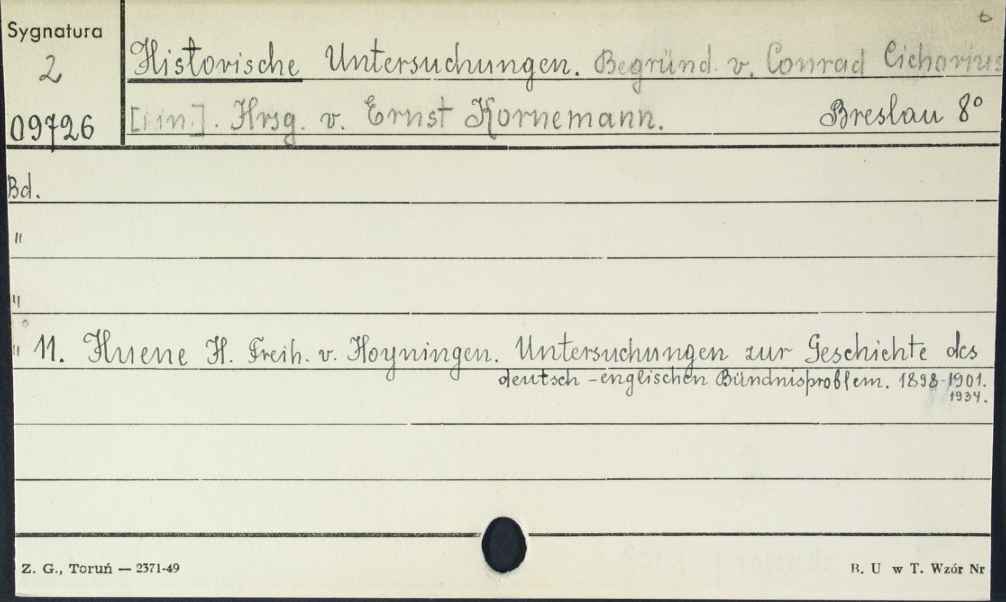 6
Sygnatura
2
09726
Historische Untersuchungen. Begründ. v. Conrad Cichorius
[i in.]. Hrsg. v. Ernst Kornemann. Breslau 8°
Bd.
"
"
" 11. Huene H. Freih. v. Hoyningen. Untersuchungen zur Geschichte des
deutsch-englischen Bündnisproblem. 1898-1901.
1934.
Z. G., Toruń — 2371-49
B. U w T. Wzór Nr